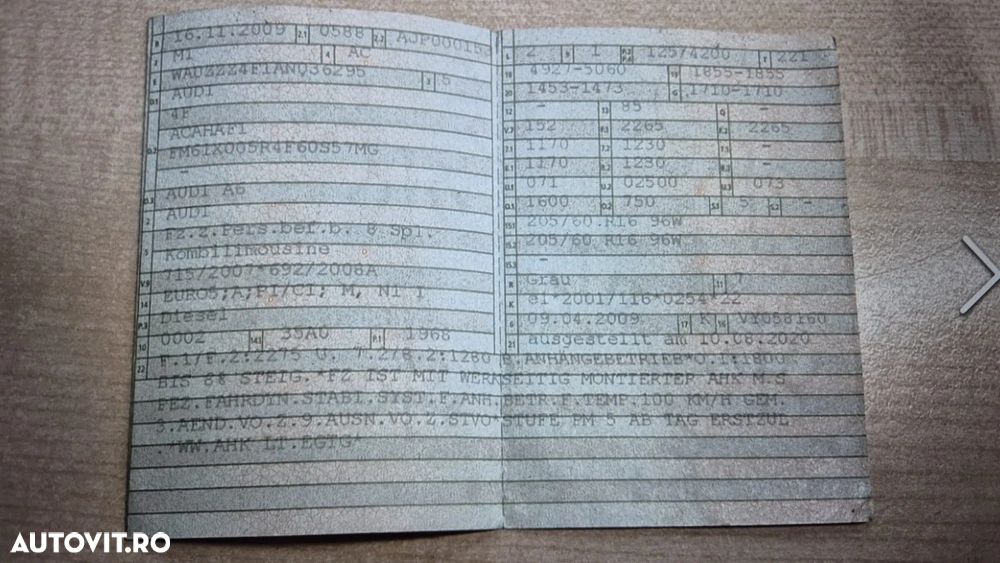 B 16.11.2009 2.1 0588 2.2 AJP00015
J M1 4 AC
E WAUZZZ4F1AN036295 3 5
D.1 AUDI
4F
D.2 ACAHAF1
FM6IX005R4F60S57MG
-
D.3 AUDI A6
2 AUDI
5 Fz.z.Pers.bef.b. 8 Spl.
Kombilimousine
V.9 715/2007*692/2008A
14 EURO5;A;PI/CI; M, N1 I
P.3 Diesel
10 0002 14.1 35A0 P.1 1968
L 2 9 1 P.2 P.4 125/4200 T 221
18 4927-5060 19 1855-1855
20 1453-1473 G 1710-1710
12 - 13 85 Q -
V.7 152 F.1 2265 F.2 2265
7.1 1170 7.2 1230 7.3 -
8.1 1170 8.2 1230 8.3 -
U.1 071 U.2 02500 U.3 073
O.1 1600 O.2 750 S.1 5 S.2 -
15.1 205/60 R16 96W
15.2 205/60 R16 96W
15.3 -
R Grau 11 7
K e1*2001/116*0254*22
6 09.04.2009 17 K 16 VY058160
21 ausgestellt am 10.08.2020
22 F.1/F.2:2275 U. 7.2/8.2:1280 B.ANHÄNGEBETRIEB*O.1:1800
BIS 8% STEIG.*FZ IST MIT WERKSEITIG MONTIERTER AHK M.S
PEZ.FAHRDYN.STABI.SYST.F.ANH.BETR.F.TEMP.100 KM/H GEM.
3.AEND.VO.Z.9.AUSN.VO.Z.STVO*STUFE PM 5 AB TAG ERSTZUL
.*WW.AHK LT.EGTG*
AUTOVIT.RO